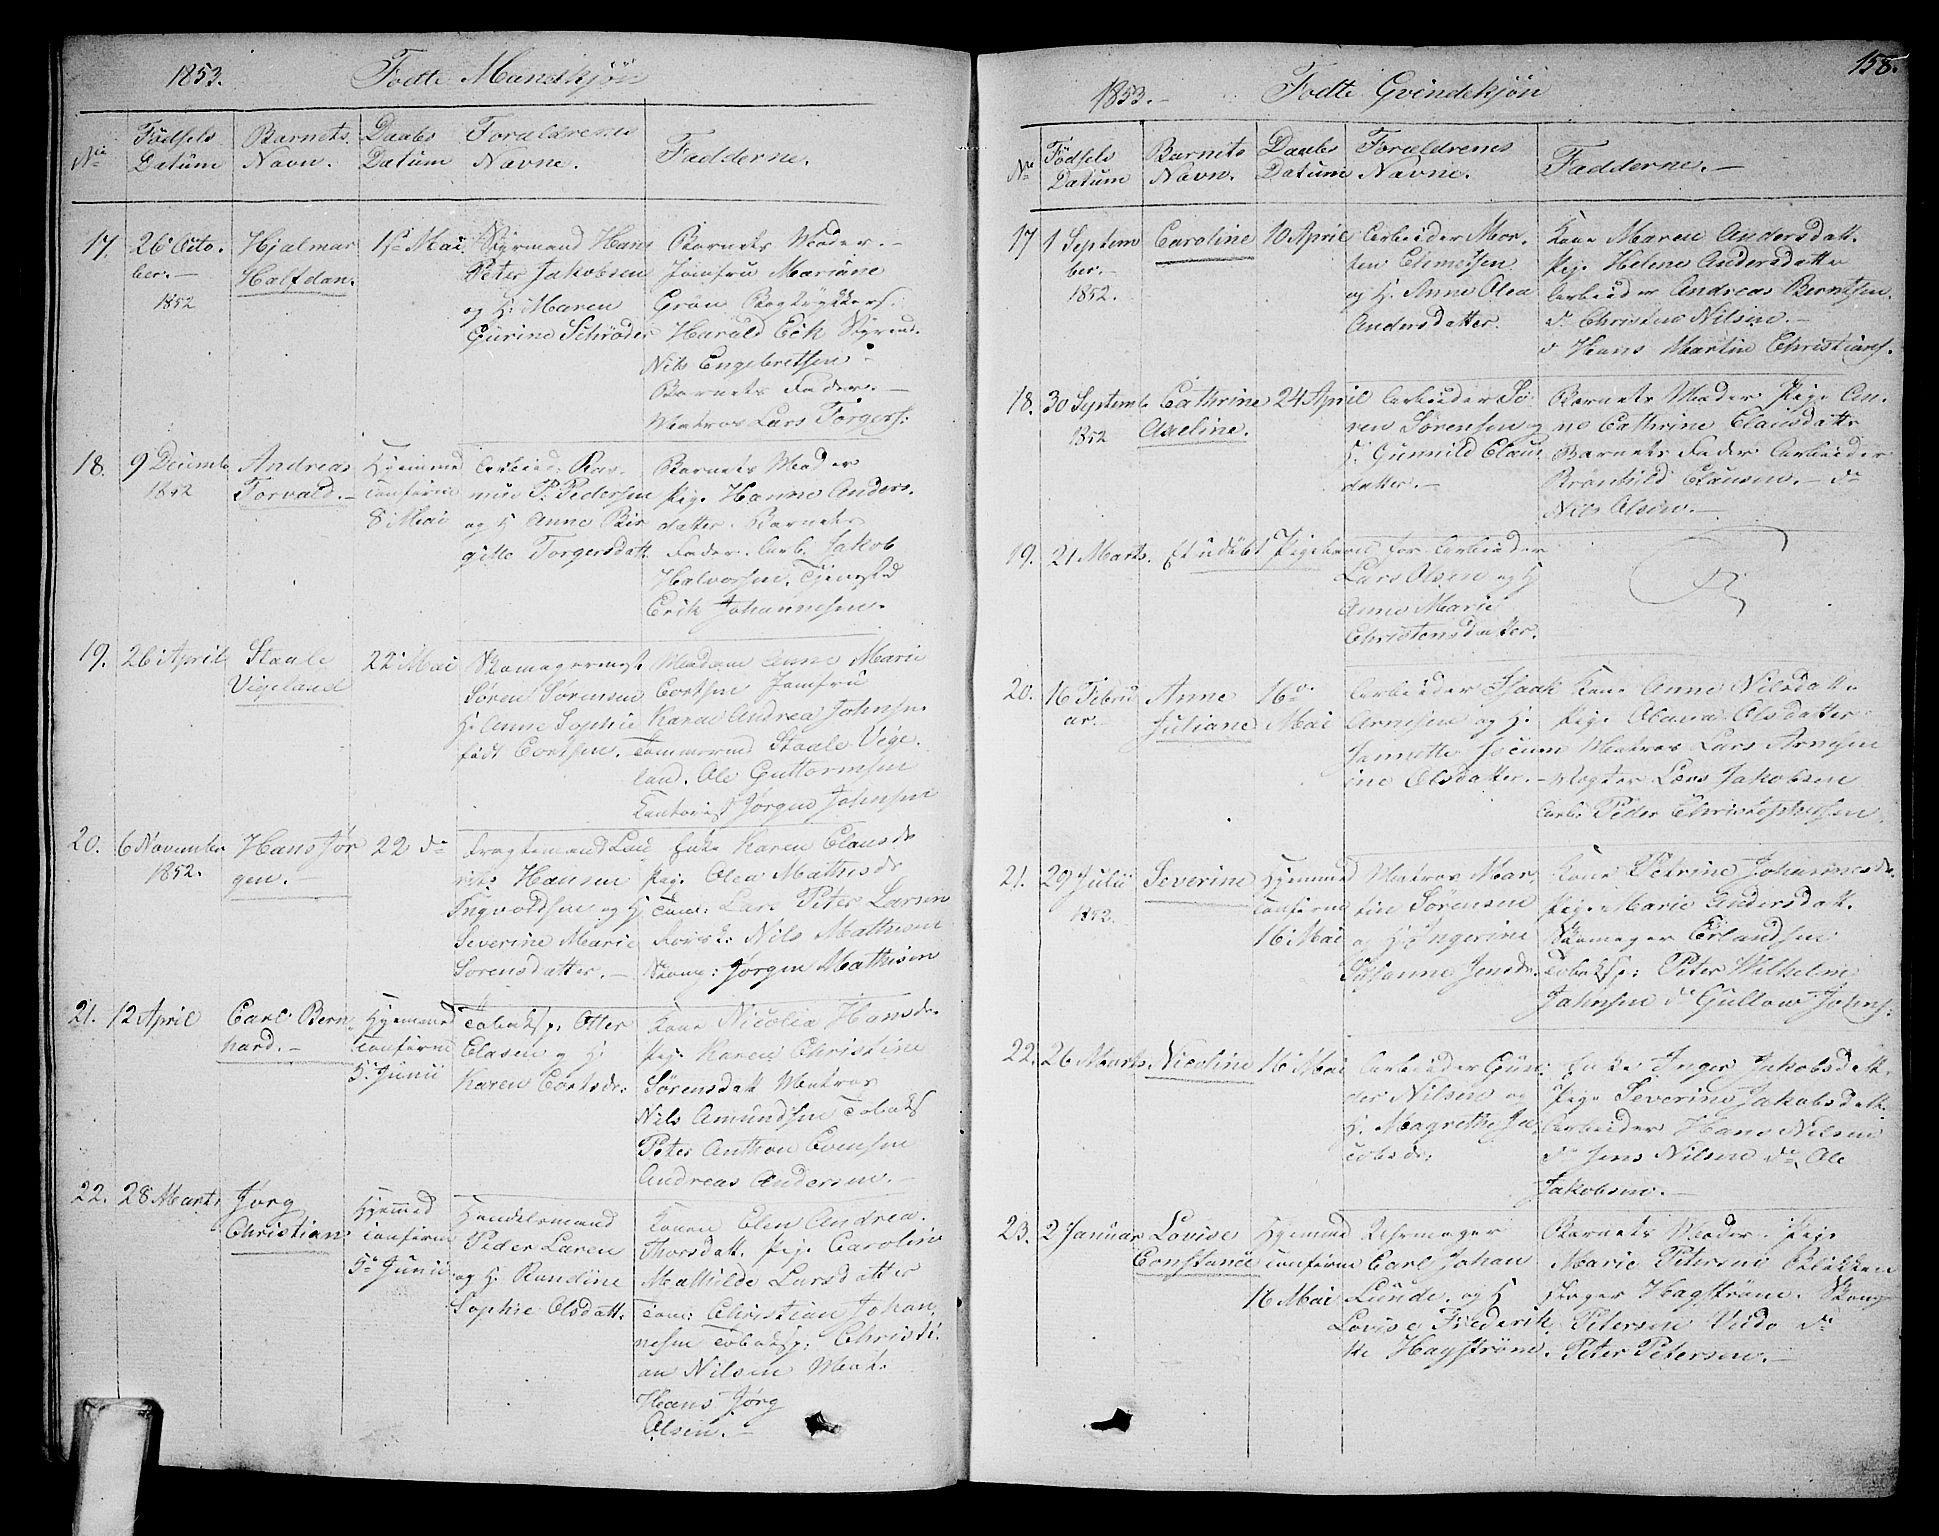 1853. Födte Mandskjön
No
Födsels Datum
Barnets Navn.
Daabs Datum
Forældrenes Navne.
Fadderne.
17. 26 Octo-
ber. —
1852
Hjalmar
Halfdan.
1ste Mai
Styrmand Hans
Peter Jakobsen
og H. Maren
Gurine Schrøder
Barnets Moder. —
Jomfru Mariane
Grøn Bogtrykkers.
Harald Eek Styrm.
Nils Engebretsen
Barnets Fader. —
Matros Lars Torgers:
18. 9 Decemb
1852
Andreas
Torvald. —
Hjemmed
confirm
8 Mai
Arbeid: Ras-
mus P. Pedersen
og H Anne Bir
gitte Torgersdatt.
Barnets Moder
Pige Hanne Anders-
datter. Barnets
Fader. Arb. Jakob
Halvorsen. Tjenestd
Erik Johannesen.
19. 26 April
Staale
Vigeland
22 Mai
Skomagermest
Sören Sörensen
H. Anne Sophie
född Cortsen.
Madam Anne Marie
Cortsen Jomfru
Karen Andrea Johnsn.
Tömmermd Staale Vige-
land. Ole Guttormsen
Kontorist Jörgen Johnsen
20. 6 November
1852.
Hans Jör
gen. —
22 do
Fragtemand Lau
rits Hansen
Ingvoldsen og H
Severine Marie
Sorensdatter. —
Enke Karen Clausdr
Pige Olea Mathisdr
Töm: Lars Peter Larsen
Forsk: Nils Mathisen
Skom: Jørgen Mathisen
21. 12 April
Carl Bern-
hard. —
Hjemmed
confirm
5 Junii
Tobaksp: Otter
Olasen og H.
Karen Cortsdr:
Kone Nicolia Hansdr.
Pige Karen Christine
Sörensdatt Matros
Nils Amundsen Tobaks
Peter Anthon Evensen
Andreas Andersen. —
22. 28 Marts
Jörg
Christian
Hjemmed
confirm
5 Junii
Handelsmand
Peder Laren
og H. Randine
Sophie Olsdatt.
Konen Elen Andrea.
Thorsdatt. Pige Caroline
Mathilde Larsdatter
Töm: Christian Johan-
nesen Tobaksp: Christi-
an Nilsen Mat.
Hans Jørg
Olsen. —
158.
1853. — Födte Qvindekjön
No
Födsels Datum
Barnets Navn.
Daabs Datum
Forældrenes Navne.
Fadderne. —
17 1 Septem
ber. —
1852.
Caroline
10 April
Arbeider Mor-
ten Elmetsen
og H. Anne Olea
Andersdatter.
Kone Maren Andersdatt.
Pige Helene Andersdatte
Arbeider Andreas Berntsen.
do Christen Nilsen. —
do Hans Martin Christians.
18. 30 Septemb
1852
Cathrine
Axeline.
24 April
Arbeider Sö-
ren Sörensen og
H. Gunnild Claus
datter. —
Barnets Moder Pige An-
ne Cathrine Clausdatte
Barnets Fader Arbeider
Brønhild Clausen. — do
Nils Olsen. —
19. 21 Marts.
Et udöbt Pigebarn for Arbeider
Lars Olsen og H
Anne Marie
Christensdatter.
20. 16 Febru
ar.
Anne
Juliane
16de
Mai
Arbeider Isaak
Arnesen og H.
Jannette Jocum
ine Olsdatter. —
Kone Anne Nilsdatte
Pige Olava Olsdatter
Matros Lars Arnesen
Vægter Lars Jakobsen
Arb: Peder Christophersen
21. 29 Julii
1852.
Severine
Hjemmed
confirm
16 Mai
Matros Mar-
tin Sörensen
og H. Ingerine
Susanne Jensdr.
Kone Petrine Johannesdr.
Pige Marie Andersdatt.
Skomager Erlandsen
Tobaksp: Peter Wilhelm
Johnsen do Gullow Johns:
22. 26 Marts
Nicoline
16 Mai
Arbeider Gun-
der Nilsen og
H. Magrethe Ja
cobsdr:
Enke Inger Jakobsdatt.
Pige Severine Jakobsdatt.
Arbeider Hans Nilsen
do Jens Nilsen do Ole
Jakobsen. —
23. 2 Januar
Lovise
Constance
Hjemmed
confirm
16 Mai
Rebmager
Carl Johan
Lunde. og H
Lovise Frederik
ke Hagström.
Barnets Moder. Pige
Marie Petersen Blikken
slager Hagström. Skomgr
Petersen Vudo do
Peter Petersen. —